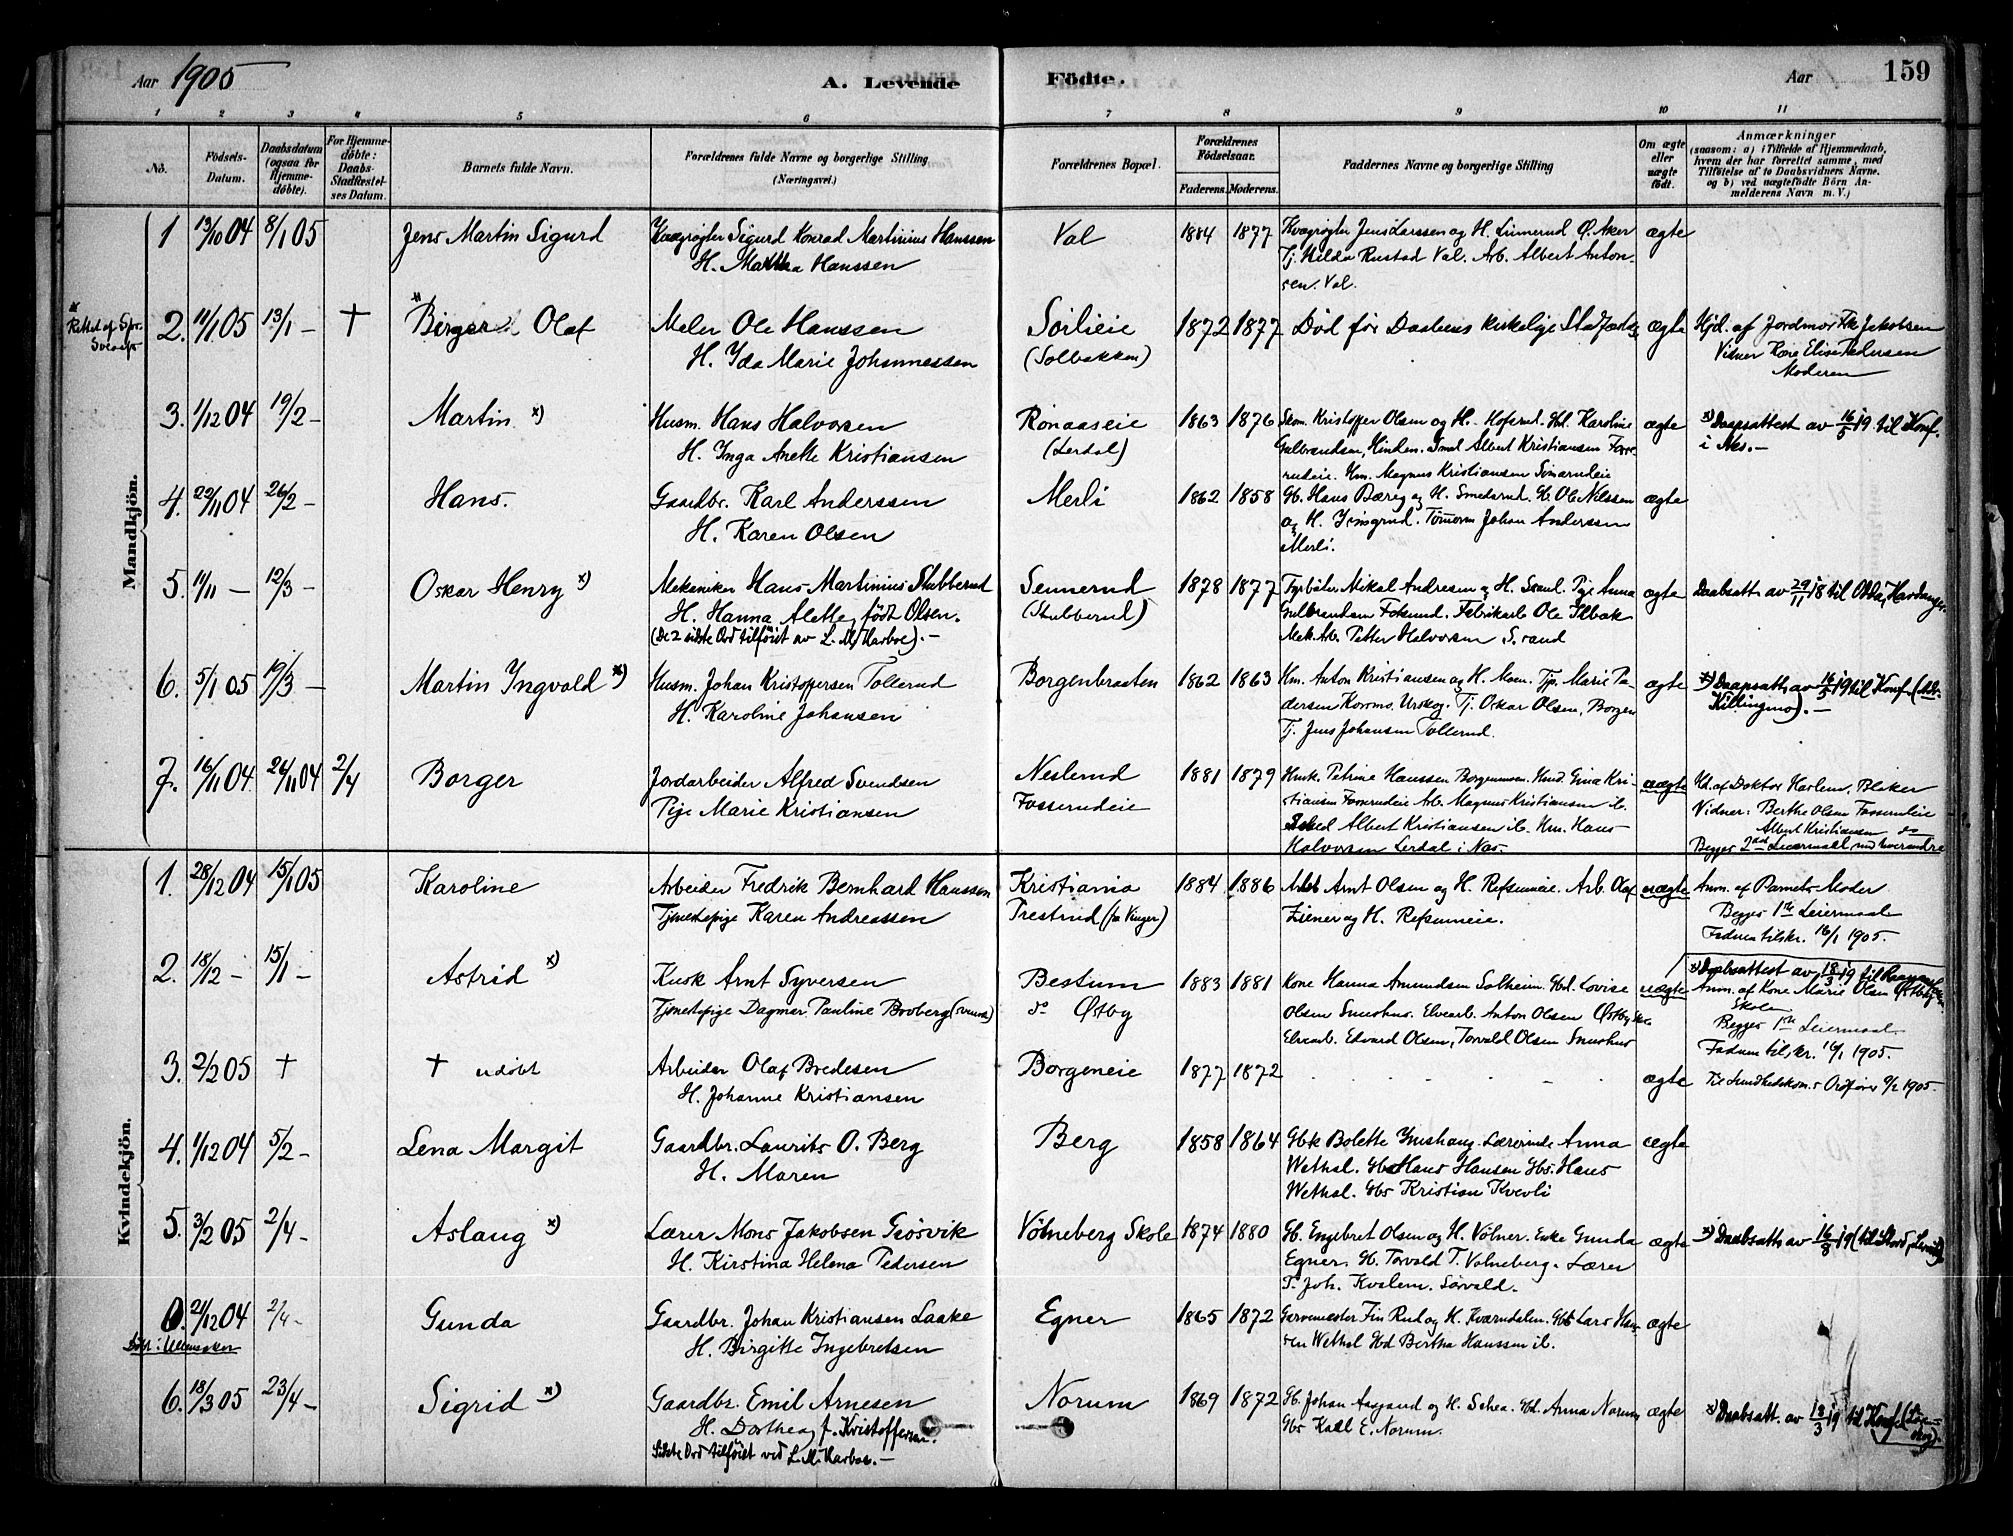 Aar 1905
A. Levende
Födte.
Aar
159
1 2 3 4 5 6 7 8 9 10 11
No.
Födsels-Datum.
Daabsdatum (ogsaa for Hjemme-döbte).
For Hjemme-döbte: Daabs-Stadfæstel-ses Datum.
Barnets fulde Navn.
Forældrenes fulde Navne og borgerlige Stilling (Næringsvei.)
Forældrenes Bopæl.
Forældrenes Födselsaar.
Faderens. Moderens.
Faddernes Navne og borgerlige Stilling
Om ægte eller uægte födt.
Anmærkninger
(saasom: a) i Tilfælde af Hjemmedaab,
hvem der har forrettet samme, med
Tilföielse af to Daabsvidners Navne.
og b) ved uægtefödte Börn An-
melderens Navn m. V.)
Mandkjön.
1 13/10 04 8/1 05 Jens Martin Sigurd Kvægrøgter Sigurd Konrad Martinius Hanssen Val 1884 1877 Kvægrøgter Jens Larssen og H. Linnerud Ø. Aker ægte
H. Martha Hanssen Tj. Hilda Rustad Val. Arb. Albert Anton-
sen. Val.
2. 11/1 05 13/1 – † Birger Olaf Meler Ole Hanssen Sørlieie 1872 1877 Død før Daabens kirkelige Stadfæstelse ægte Hjd. af Jordmor Frk Jakobsen
H. Yda Marie Johannessen (Solbakken) Vidner Kone Elise Pedersen
Moderen
3. 1/12 04 19/2 – Martin x) Husm. Hans Halvorsen Rønaaseie 1863 1876 Skom. Kristoffer Olsen og H. Hoferud. Gbd. Karoline ægte x) Daapsattest av 16/5 19 til Konf.
H. Inga Anette Kristiansen (Lerdal) Gulbrandsen, Hinden. Smed Albert Kristiansen Fosse- i Nes.–
rudeie. Hm. Magnus Kristiansen
4. 22/11 04 26/2 – Hans. Gaardbr. Karl Anderssen Merli 1862 1858 Gb. Hans Bæreg og H. Smedsrud. Gb. Ole Nilssen ægte
H. Karen Olsen og H. Tømerm Johan Anderssen
Merli.
5. 14/11 – 12/3 – Oskar Henry x) Mekaniker Hans Martinius Stubberud Sennerud 1878 1877 Fyrbøter Mikal Andresen og H. Pige Anna ægte Daabsatt. av 29/11 18 til Odda, Hardanger
H. Hanna Alette, født Olsen. (Stubberud) Gulbrandsen Fossund. Fabrikarb. Ole Ilbæk
(De 2 sidste Ord tilføiet av L. M. Harboe). – Mek. Arb. Petter Halvorsen
6. 5/1 05 19/3 – Martin Ingvald x) Husm. Johan Kristoffersen Tollerud Borgenbraaten 1862 1863 Hm. Anton Kristiansen og H. Moen. Tjp. Marie Pe- ægte x) Daapsatt. av 16/5 19 til Konf. (
H. Karoline Johansen dersen Korsmo. Urskog. Tj. Oskar Olsen, Borgen Killingmo). –
Tj. Jens Johansen Tollerud.
7. 16/11 04 26/11 04 2/4 Borger Jordarbeider Alfred Svendsen Neslerud 1881 1879 Husk. Petrine Hanssen Borgenmoen. Husd. Gina Kri- uægte Hd. af Doktor Harlem, Blaker
Pige Marie Kristiansen Fosserudeie stiansen Fosserudeie Arb. Magnus Kristiansen ib. Vidner: Berthe Olsen Fosserudeie
Smed Albert Kristiansen ib. Hm. Hans Albert Kristiansen do
Halvorsen Lerdal i Nes. Begges 2det Leiermaal med hverandre
Kvindekjön.
1. 28/12 04 15/1 05 Karoline Arbeider Fredrik Bernhard Hanssen Kristiania 1884 1886 Arb. Arnt Olsen og H. Refsumeie. Arb. Olaf uægte Anm. af Barnets Moder
Tjenestepige Karen Andreassen Trestrud (fa Vinger) Ziener og H. Refsumeie. Begges 1ste Leiermaal
Faderen tilskr. 16/1 1905.
2. 18/12 – 15/1 – Astrid x) Kusk Arnt Syversen Bestum 1883 1881 Kone Hanna Amundsen Solheim. Gbd. Lovise uægte x) Daabsattest av 18/3 19 til
Tjenestepige Dagmar Pauline Broberg (svensk) do Østby Olsen Smushus. Elvearb. Anton Olsen Østby Anm. af Kone Marie Olsen Østby
Elvearb. Edvard Olsen, Torvald Olsen Smushus Skolen
Begges 1ste Leiermaal
Faderen tilskr. 16/1 1905.
3. 2/2 05 † † udøbt Arbeider Olaf Bredesen Borgeneie 1877 1872 . - - - ægte Til Sundhedskom.s Ordfører 9/2 1905.
H. Johanne Kristiansen
4. 1/12 04 5/2 – Lena Margit Gaardbr. Laurits O. Berg Berg 1858 1864 Gbk Bolette Ymshaug. Lærerinde Anna ægte
H. Maren Wethal. Gbs Hans Hansen Gbs. Hans
Wethal. Gbs Kristian Kvevli
5. 3/2 05 2/4 – Aslaug x) Lærer Mons Jakobsen Grøsvik Vølneberg Skole 1874 1880 Gb. Engebret Olsen og H. Vølner. Enke Gunda ægte x) Daabsatt. av 16/8 19 (til Stord,
H. Kirstina Helena Pedersen Egner. Gb. Torvald T. Vølneberg. Lærer
T. Joh. Kvalem. Sørvald.
0. 21/12 04 2/4 – Gunda Gaardbr. Johan Kristiansen Laake Egner 1865 1872 Garvemester Fin Rud og H. Kværndalen. Gbs Lars Han- ægte
Døbt i Ullensaker H. Birgitte Ingebretsen sen Wethal Gbd Bertha Hanssen ib.
6. 18/3 05 23/4 – Sigrid x) Gaardbr. Emil Arnesen Norum 1869 1872 Gb. Johan Aasgaard og H. Schea. Gbd. Anna Norum, ægte x) Daabsatt. av 18/3 19 til Konf.
H. Dorthea f. Kristoffersen. Gbs Karl E. Norum.
Sidste Ord tilføiet ved L. M. Harboe. –